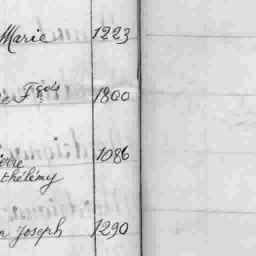 Marie 1223
Fçois 1800
ierre 1086
thélémy
n Joseph 1290